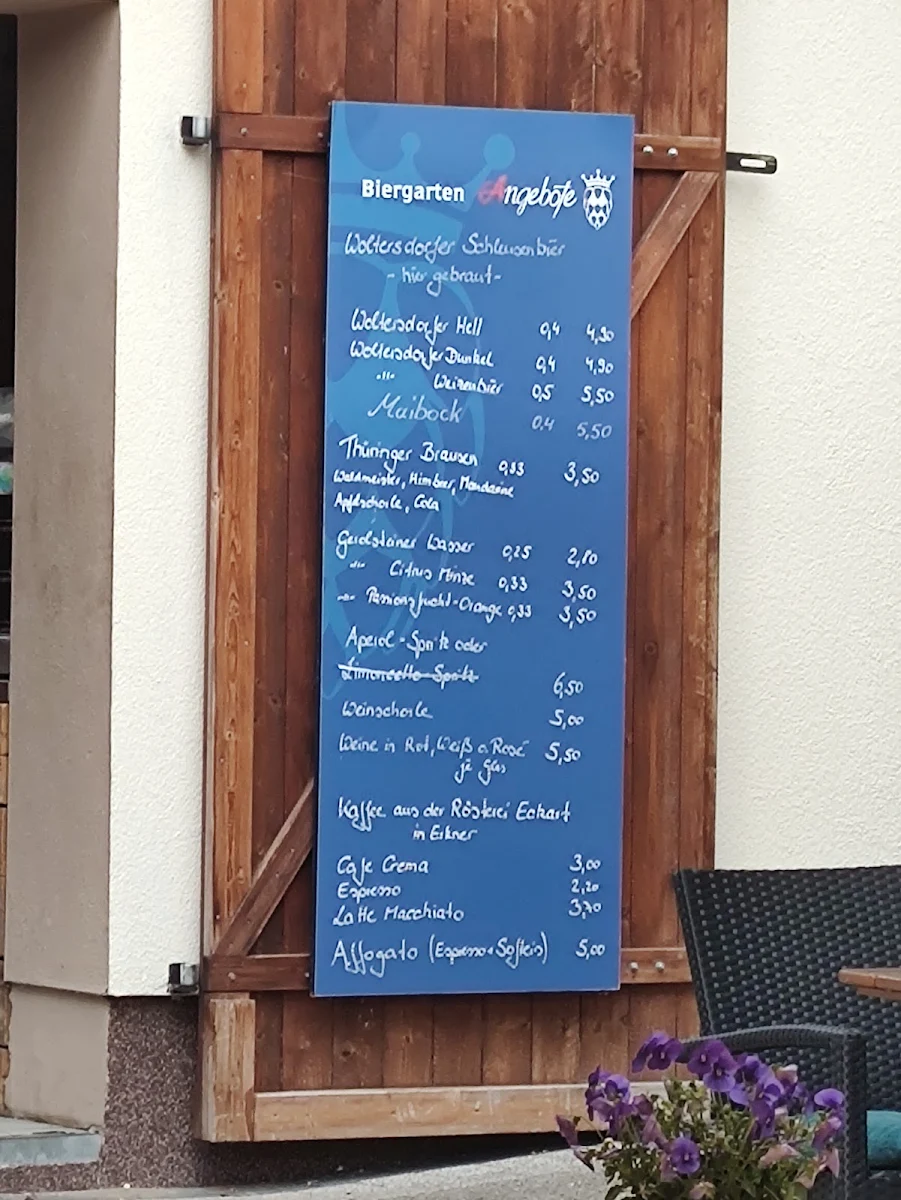 Biergarten Angebote
Woltersdorfer Schleusenbier
- hier gebraut -
Woltersdorfer Hell 0,4 4,90
Woltersdorfer Dunkel 0,4 4,90
-"- Weizenbier 0,5 5,50
Maibock 0.4 5,50
Thüringer Brausen 0,33 3,50
Waldmeister, Himbeer, Mandarine
Apfelschorle, Cola
Gerolsteiner Wasser 0,25 2,80
-"- Citrus Minze 0,33 3,50
-"- Passionsfrucht-Orange 0,33 3,50
Aperol-Spritz oder
Limoncello-Spritz 6,50
Weinschorle 5,00
Weine in Rot, Weiß o. Rosé 5,50
je Glas
Kaffee aus der Rösterei Eckart
in Erkner
Cafe Crema 3,00
Espresso 2,20
Latte Macchiato 3,70
Affogato (Espresso + Softeis) 5,00